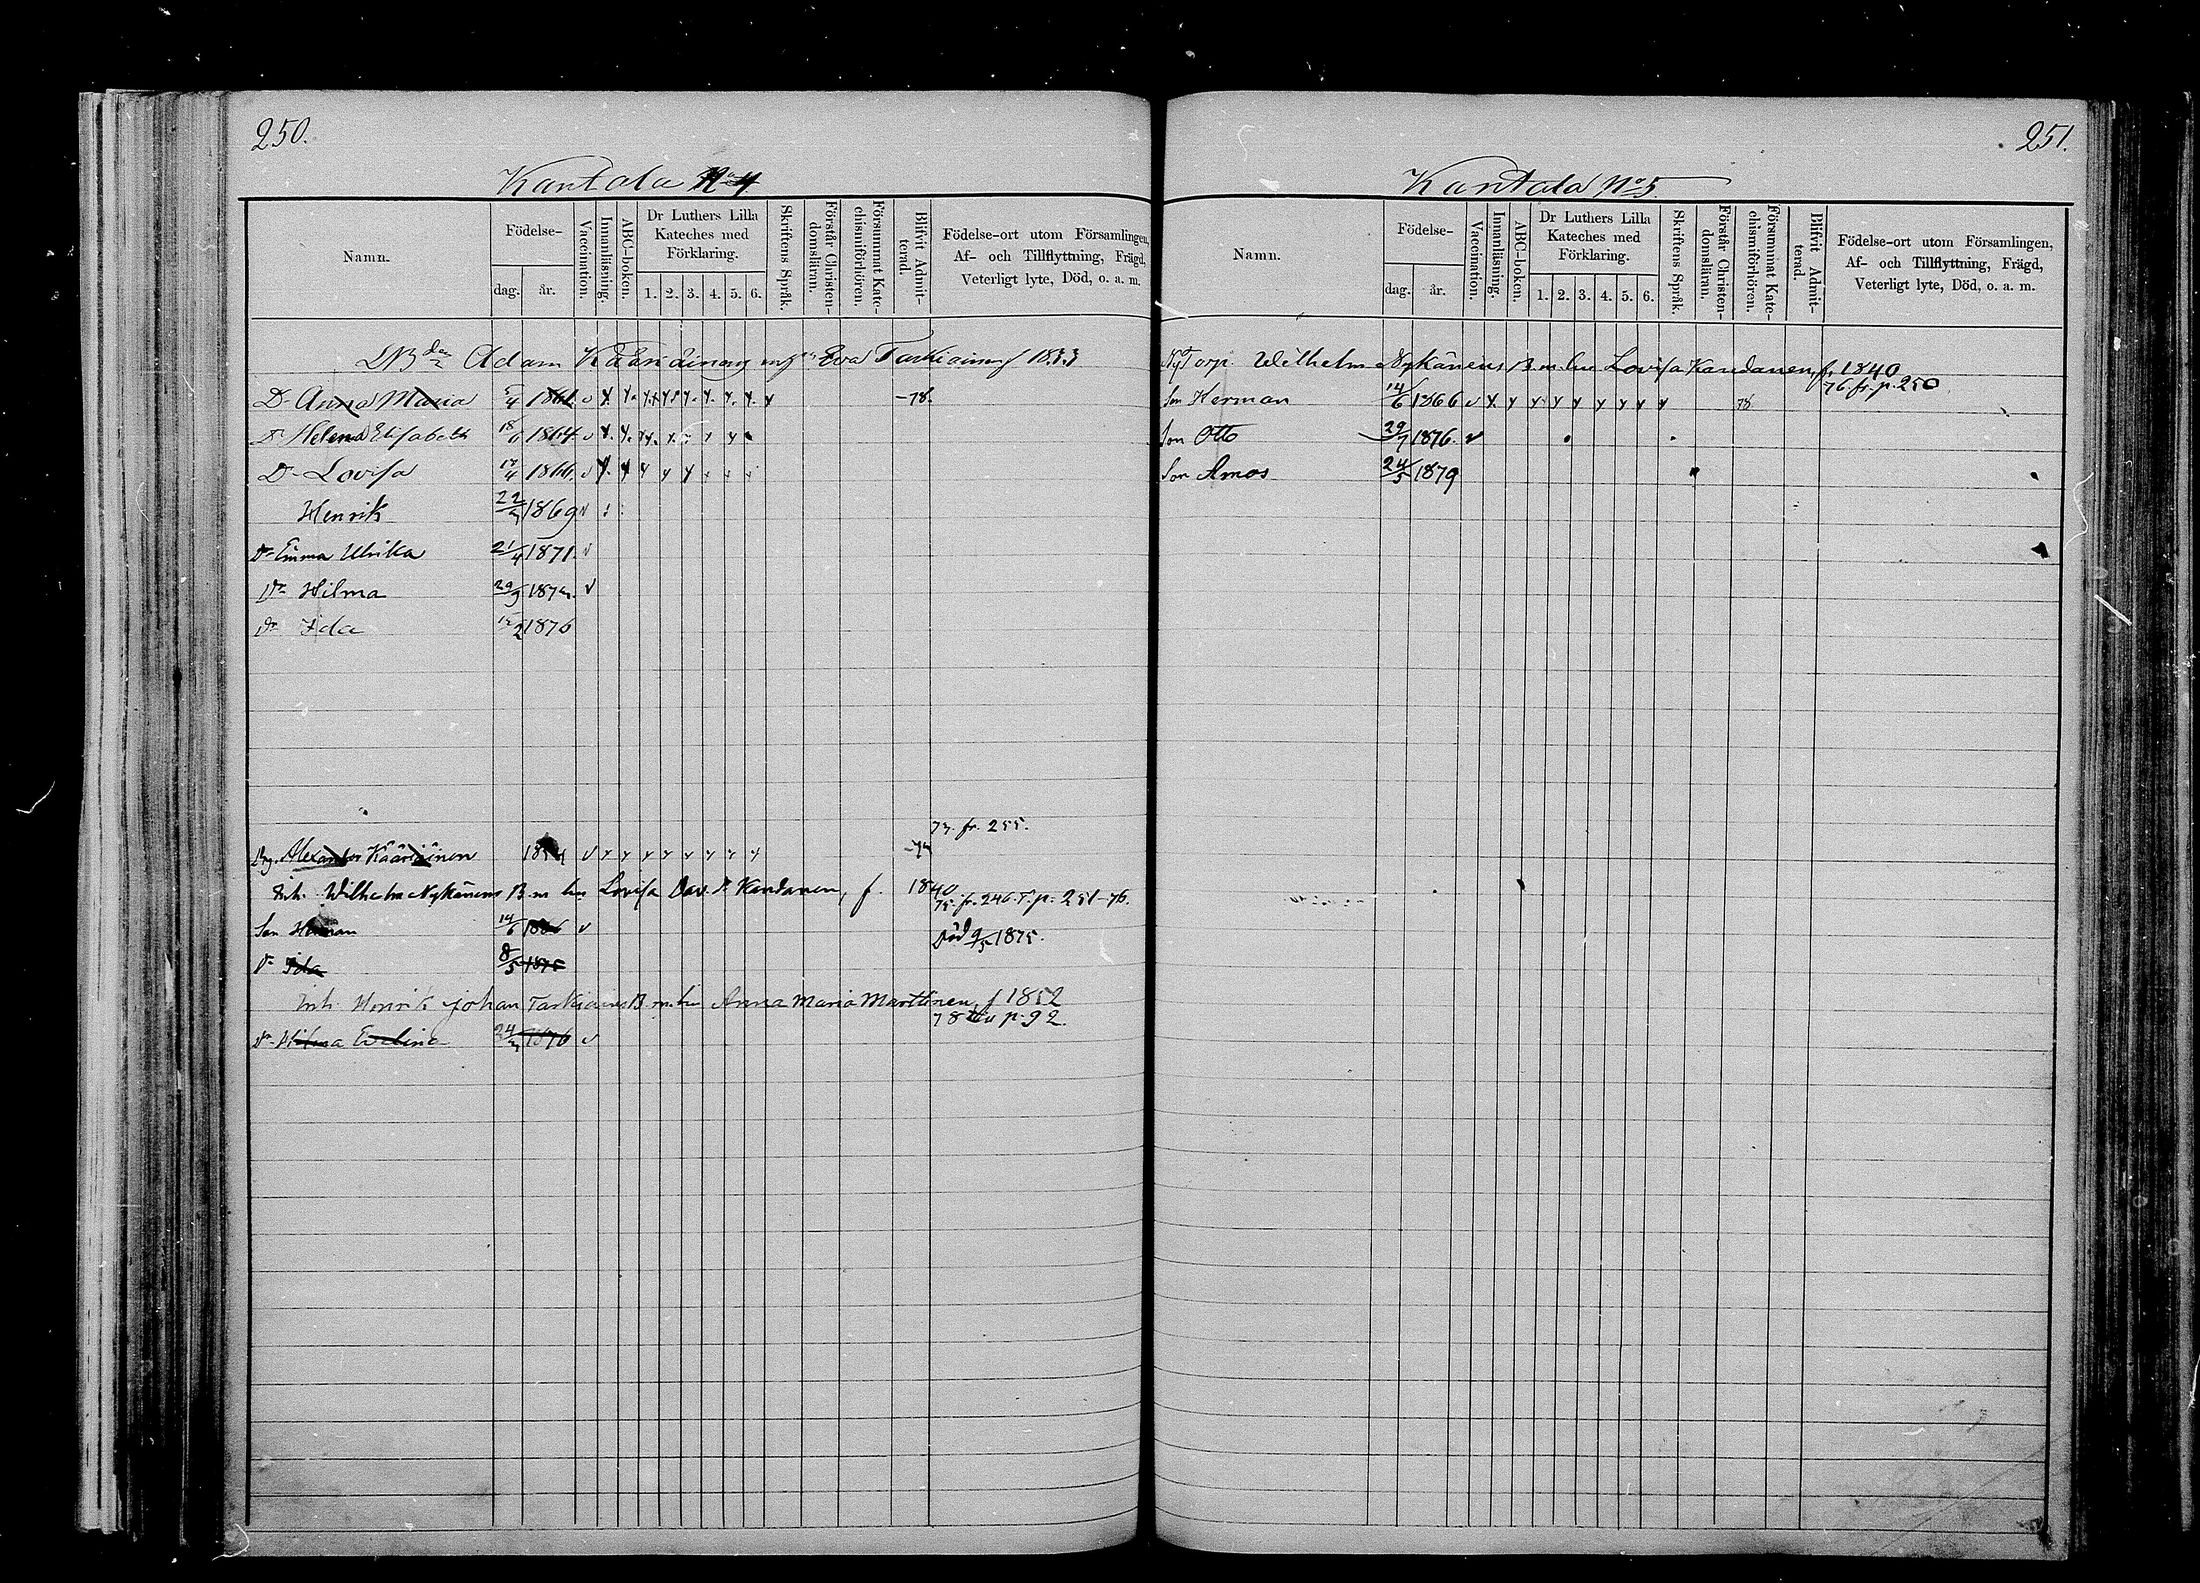 250.
Kantala No 4
Namn.
Födelse-
dag.
år.
Vaccination.
Innanläsning.
ABC-boken.
Dr Luthers Lilla
Kateches med
Förklaring.
1. 2. 3. 4. 5. 6.
Skriftens Språk.
Förstår Christen-
domsläran.
Försummat Kate-
chismiförhören.
Blifvit Admit-
terad.
Födelse-ort utom Församlingen,
Af- och Tillflyttning, Frägd,
Veterligt lyte, Död, o. a. m.
Adam Kääriäinen Eva Tarkiainen f 1833
Dr Anna Maria 5/4 1861 v y. y. y. y. y. y. y. y. y -78.
Dr Helena Elisabeth 18/6 1864 v y. y. y. y. y y y
Dr Lovisa 17/4 1866 v y. y y y y
Henrik 22/3 1869 v
Dr Emma Ulrika 21/4 1871 v
Dr Hilma 29/9 1873. v
Dr Ida 12/2 1876
73. fr. 255.
Alexander Kääriäinen v y y y y y y y y
Inh. Wilhelm Nykänens B. m. hu Lovisa Dav. dr Kandanen, f. 1840
75. fr. 246. T. p. 251-76.
Son Herman 14/6 1866 v
Död 9/5 1875.
Dr Ida 8/5 1875
Inh. Henrik Johan Tarkiainens B. m. hu Anna Maria Marttinen, f 1852
78 till p. 92.
Dr Hilma Evelina 24/3 1876 v
251.
Kantala No 5.
Namn.
Födelse-
dag.
år.
Vaccination.
Innanläsning.
ABC-boken.
Dr Luthers Lilla
Kateches med
Förklaring.
1. 2. 3. 4. 5. 6.
Skriftens Språk.
Förstår Christen-
domsläran.
Försummat Kate-
chismiförhören.
Blifvit Admit-
terad.
Födelse-ort utom Församlingen,
Af- och Tillflyttning, Frägd,
Veterligt lyte, Död, o. a. m.
Torp. Wilhelm Nykänens B. m. hu Lovisa Kandanen, f. 1840
76. fr. p. 250
Son Herman 14/6 1866 v y y y y y y y y y 78
Son Otto 29/7 1876. v
Son Amos 24/5 1879